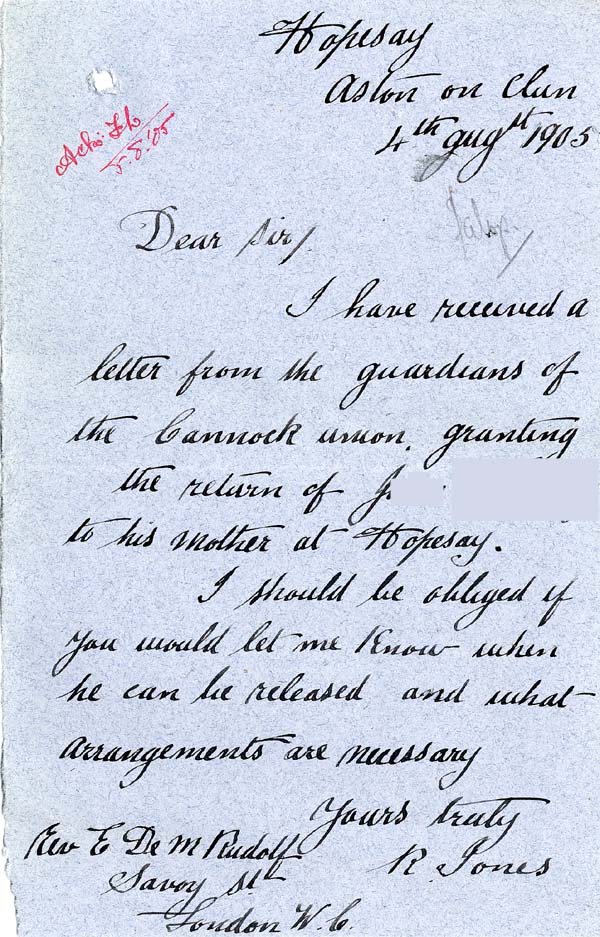 Hopesay
Aston on Clun
4th Augst 1905
5.8.'05
Dear Sir/
I have received a
letter from the guardians of
the Cannock union, granting
the return of J
to his mother at Hopesay.
I should be obliged if
you would let me know when
he can be released and what
arrangements are necessary
Yours truly
R Jones
Rev E De M Rudolf
Savoy St
London W.C.